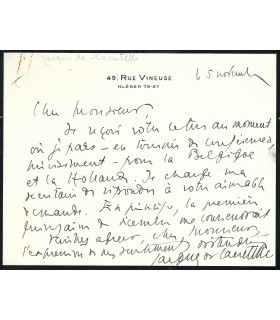 Jacques de Lacretelle
49, RUE VINEUSE
KLÉBER 79-87
15 novembre
Cher Monsieur,
Je reçois votre lettre au moment
où je pars — en tournée de conférences,
précisément — pour la Belgique
et la Hollande. Je charge ma
secrétaire de répondre à votre aimable
demande. En principe, la première
quinzaine de décembre me conviendrait.
Veuillez agréer, cher Monsieur,
l'expression de mes sentiments distingués
Jacques de Lacretelle